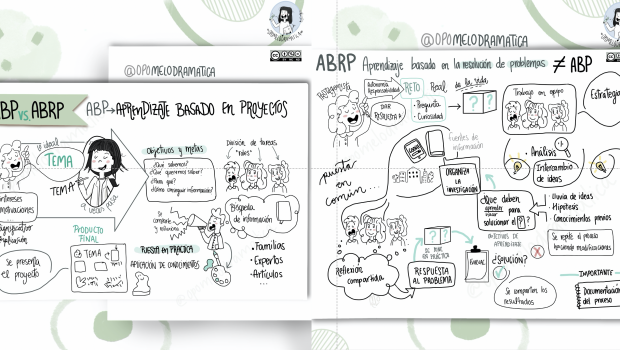 @OPOMELODRAMATICA
BP VS. ABRP
ABP → APRENDIZAJE BASADO EN PROYECTOS
lo ideal
TEMA
TEMA
a veces
Objetivos y metas
¿Qué sabemos?
¿Qué queremos saber?
¿Para qué?
¿Cómo conseguir información?
DIVISIÓN DE TAREAS
"roles"
Intereses
motivaciones
Significativo
PRODUCTO
FINAL
TEMA
Se presenta
el proyecto
Se comparte
PUESTA EN PRÁCTICA
APLICACIÓN DE CONOCIMIENTOS
Búsqueda
de información
• Familias
• Expertos
• Artículos
...
@OPOMELODRAMATICA
ABRP Aprendizaje basado en la resolución de problemas ≠ ABP
PROTAGONISTA
Autonomía
Responsabilidad
DAR
RESPUESTA A
RETO Real de la vida
• Pregunta
• Curiosidad
? ?
Trabajo en equipo
Estrategia
• Análisis
• Intercambio
de ideas
Fuentes de
información
ORGANIZAR
LA
INVESTIGACIÓN
puesta
en
común...
¿Que deben
aprender
para
solucionar el ?
• Lluvia de ideas
• Hipótesis
• Conocimientos previos
OBJETIVOS DE
APRENDIZAJE
Se repite el proceso
haciendo modificaciones
? ?
SE PONE
EN PRÁCTICA
Reflexión
compartida
RESPUESTA
AL PROBLEMA
EVALUAR
¿SOLUCIÓN?
Se comparten los
resultados
IMPORTANTE
Documentación
del proceso